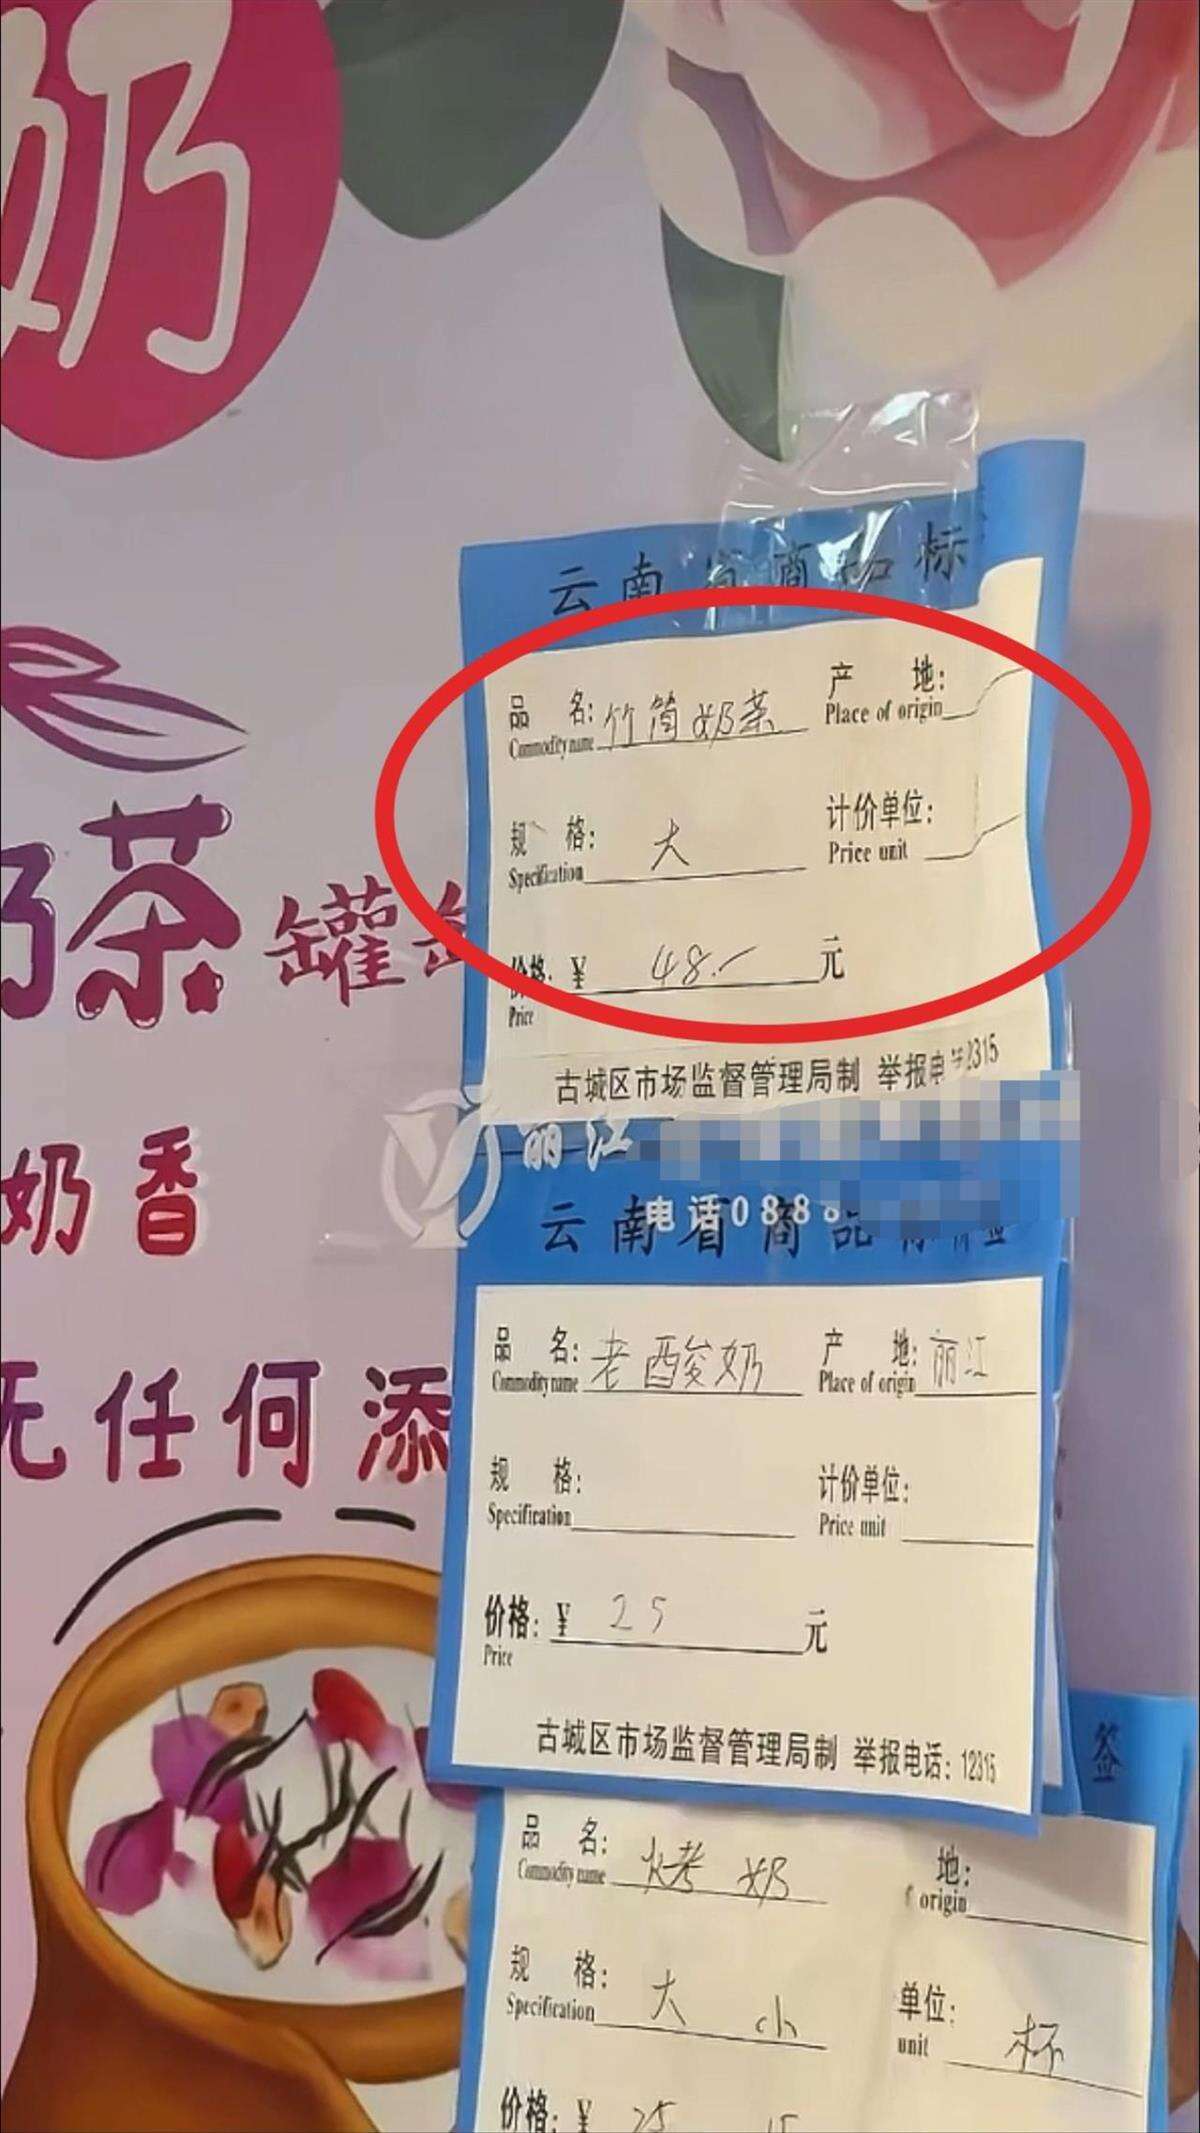 奶
云南省商品标
品 名: 竹筒奶茶 产 地:
Commodity name Place of origin
规 格: 大 计价单位:
Specification Price unit
价格: ¥ 48.- 元
Price
古城区市场监督管理局制 举报电 2315
奶茶罐
奶香
无任何添
丽江
电话088
云南省商品标签
品 名: 老酸奶 产 地: 丽江
Commodity name Place of origin
规 格: 计价单位:
Specification Price unit
价格: ¥ 25 元
Price
古城区市场监督管理局制 举报电话: 12315
签
品 名: 烤奶 地:
Commodity name origin
规 格: 大 小 单位: 杯
Specification unit
价格: ¥ 25 15